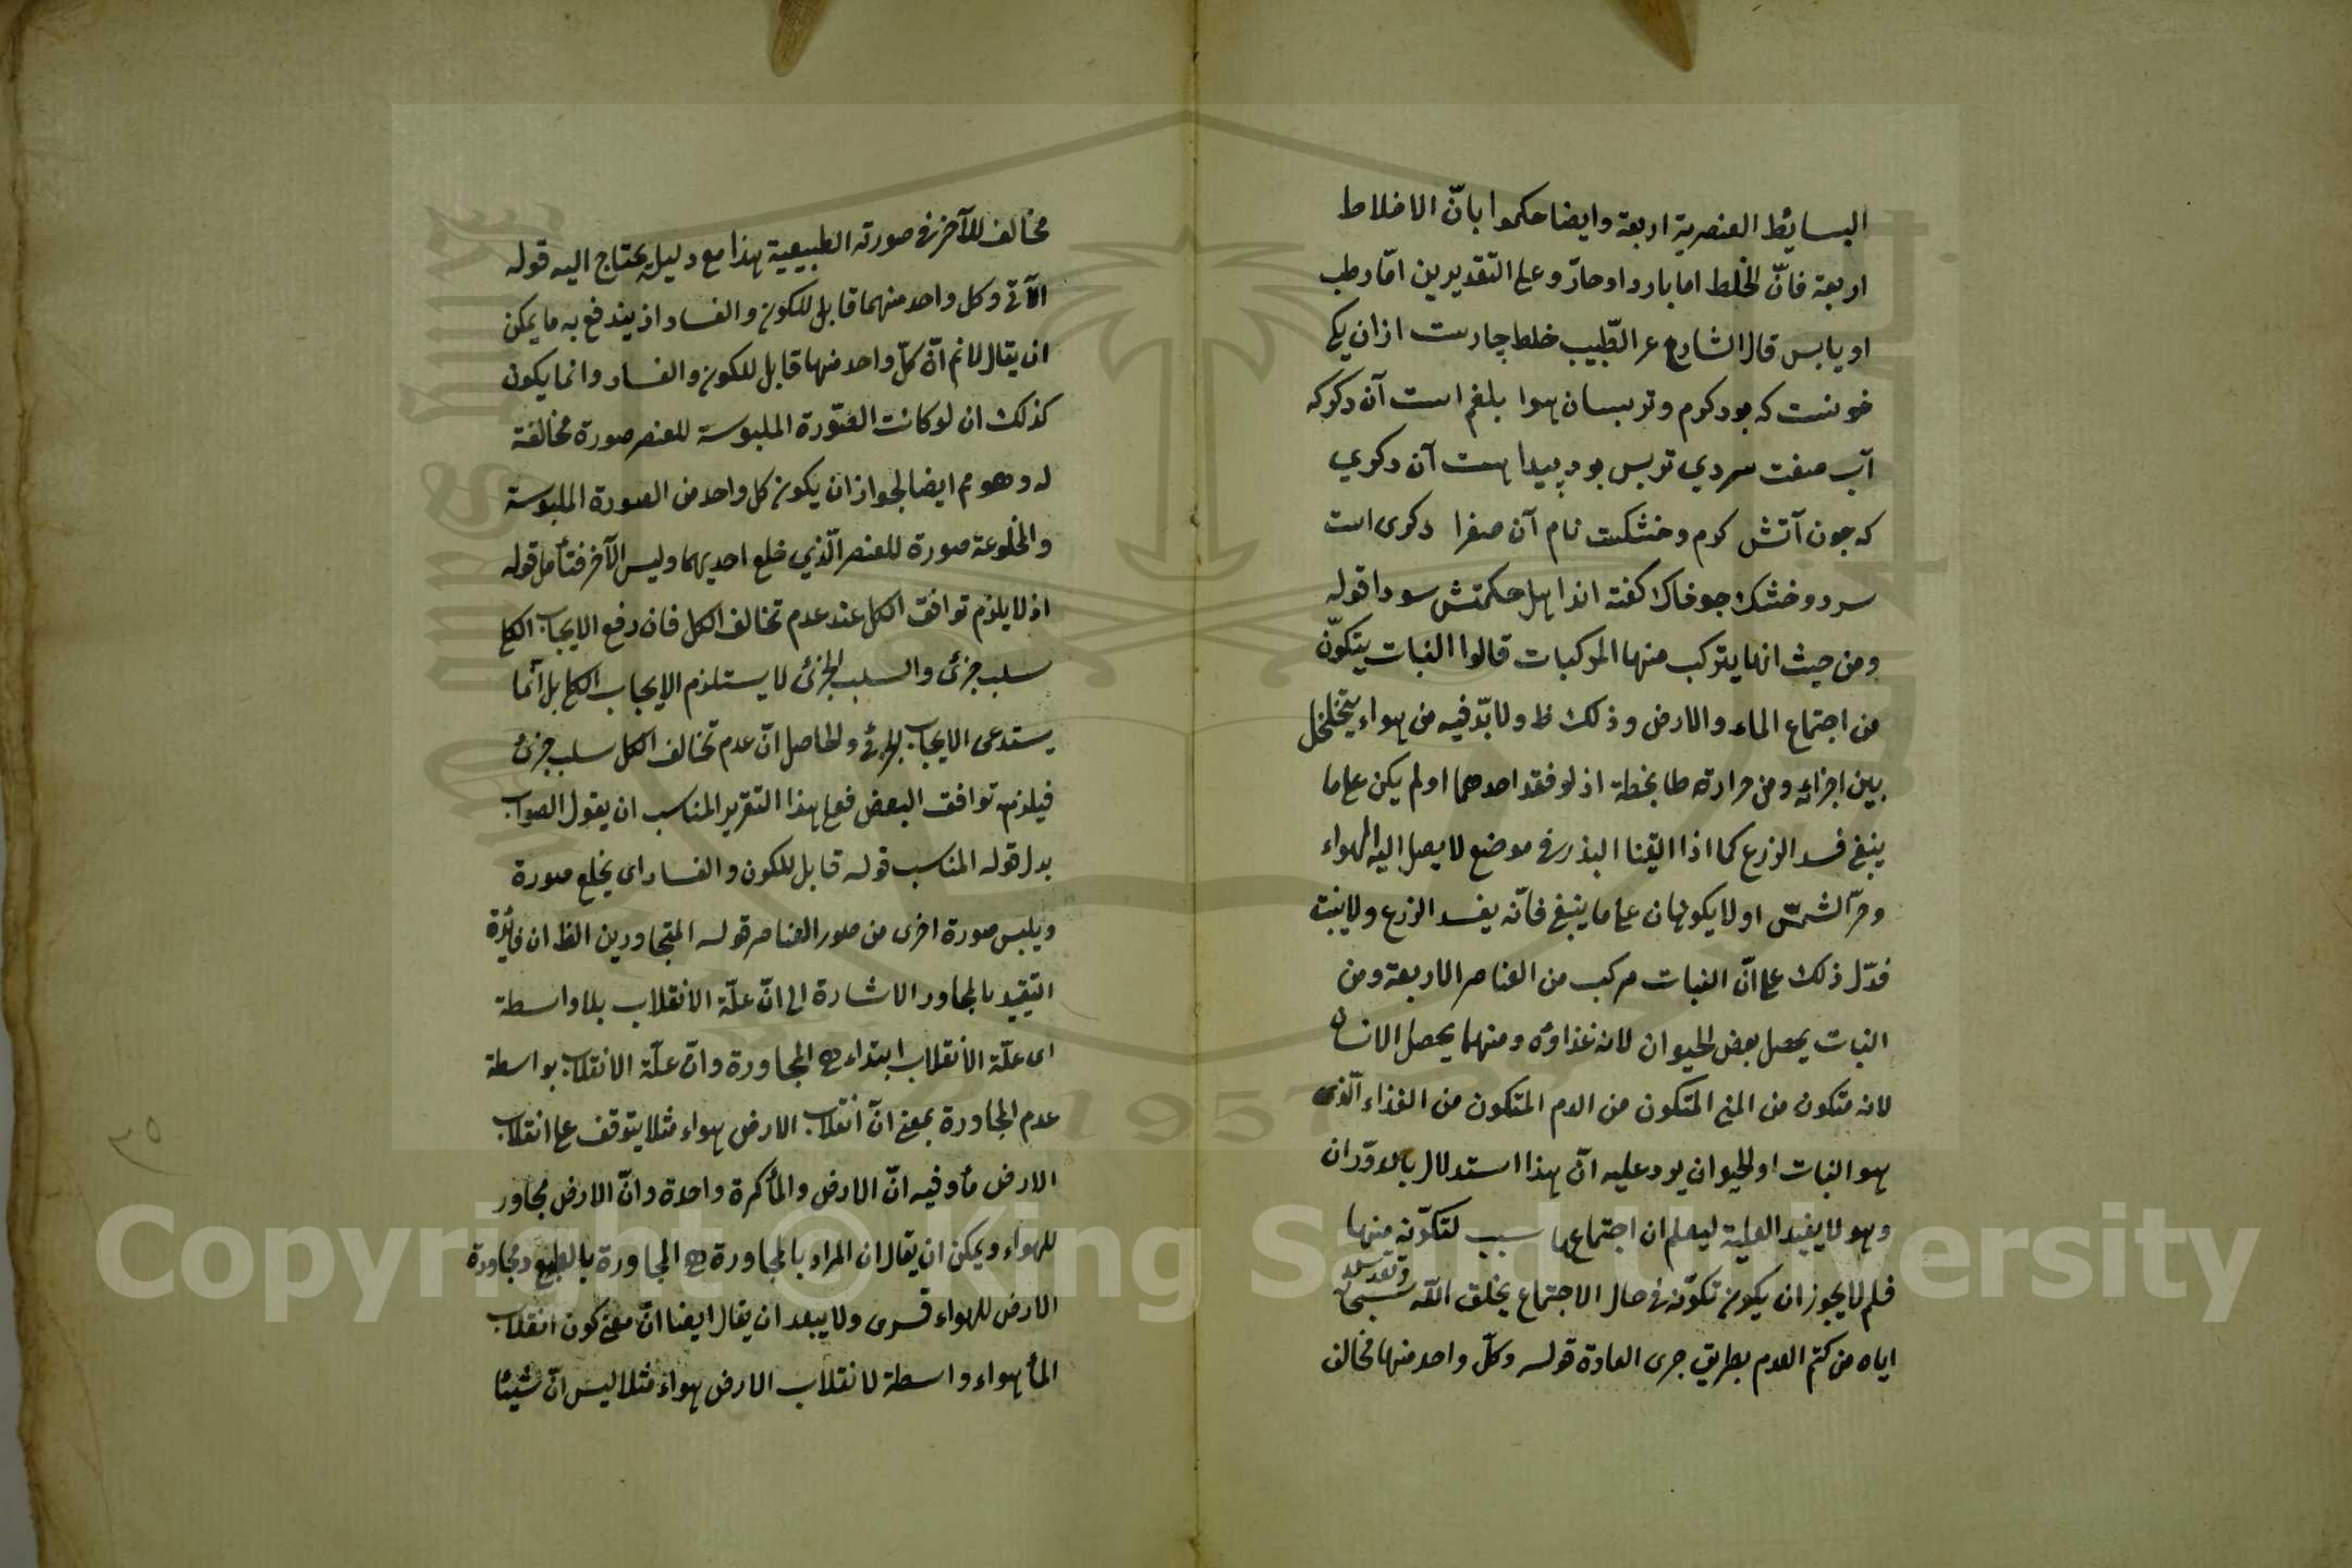 البسائط العنصرية اربعة وايضا حكموا بانّ الاخلاط
اربعة فانّ الخلط اما بارد او حارّ وعلى التقديرين امّا رطب
او يابس قال الشارع عر الطّبيب خلط چارست ازان يكى
خونست كه بود كرم وتر بسان هوا بلغم است آن دكر كه
آب صفت سردي تريس بود پيدا هست آن دكري
كه جون آتش كرم وخشكست نام آن صفرا دكرى است
سرد وخشك جو خاك كفته اند اهل حكمتش سودا قوله
ومن حيث انها يتركب منها المركبات قالوا النبات يتكوّن
من اجتماع الماء والارض وذلك ظ ولا بدّ فيه من هواء يتخلخل
بين اجزائه ومن حرارة طابخة اذ لو فقد احدهما او لم يكن على ما
ينبغى فسد الزرع كما اذا القينا البذر فى موضع لا يصل اليه الهواء
وحرّ الشمس او لا يكونان على ما ينبغى فانّه يفسد الزرع ولا ينبت
فدّل ذلك على انّ النبات مركب من العناصر الاربعة ومن
النبات يحصل بعض الحيوان لانه غذاؤه ومنهما يحصل الانسان
لانه متكون من المنى المتكون من الدم المتكون من الغذاء الّذى
هو النبات او الحيوان يرد عليه انّ هذا استدلال بالدوّران
وهو لا يفيد العلية ليعلم ان اجتماعها سبب لتكوّنه منها
فلم لا يجوز ان يكون تكوّنه فى حال الاجتماع بخلق الله سبحانه
اياه من كتم العدم بطريق جرى العادة قوله وكلّ واحد منها مخالف
مخالف للآخر فى صورته الطبيعية هذا مع دليله يحتاج اليه قوله
الآتى وكل واحد منهما قابل للكون والفساد اذ يندفع به ما يمكن
ان يقال لانم انّ كلّ واحد منها قابل للكون والفساد وانما يكون
كذلك ان لو كانت الصّورة الملبوسة للعنصر صورة مخالفة
له وهو مم ايضا لجواز ان يكون كل واحد من الصورة الملبوسة
والمخلوعة صورة للعنصر الّذي خلع احديهما وليس الآخر فتأمل قوله
اذ لا يلزم توافق الكل عند عدم تخالف الكل فان رفع الايجاب الكلى
سلب جزئ والسلب الجزئ لا يستلزم الايجاب الكلى بل انّما
يستدعى الايجاب الجزئى والحاصل انّ عدم تخالف الكل سلب جزئ
فيلزمه توافق البعض فعلى هذا التقرير المناسب ان يقول الصواب
بدل قوله المناسب قوله قابل للكون والفساد اى يخلع صورة
ويلبس صورة اخرى من صور العناصر قوله المتجاورين الظ ان فائدة
التقييد بالمجاور الاشارة الى انّ علّة الانقلاب بلا واسطة
اى علّة الانقلاب ابتداء هى المجاورة وانّ علّة الانقلاب بواسطة
عدم المجاورة بمعنى انّ انقلاب الارض هواء مثلا يتوقف على انقلاب
الارض مأ وفيه انّ الارض والمأ كرة واحدة وانّ الارض مجاور
للهواء ويمكن ان يقال ان المراد بالمجاورة هى المجاورة بالطبع ومجاورة
الارض للهواء قسرى ولا يبعد ان يقال ايضا انّ معنى كون انقلاب
المأ هواء واسطة لانقلاب الارض هواء مثلا ليس انّ شيئا
٣٥
Copyright © King Saud University
1957